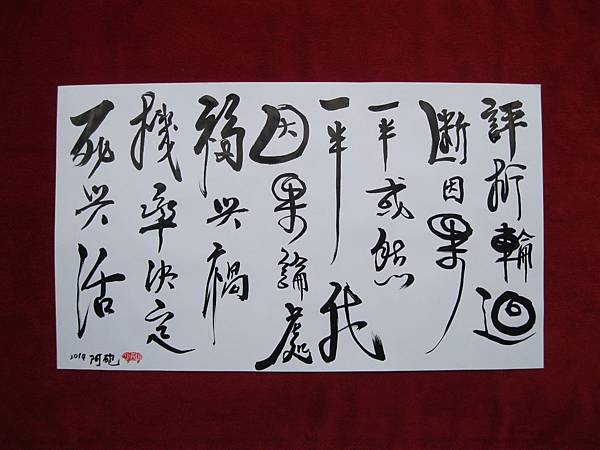 評析輪迴
斷因果
一半或然
一半我
因果論處
福與禍
機率決定
死與活
阿砲